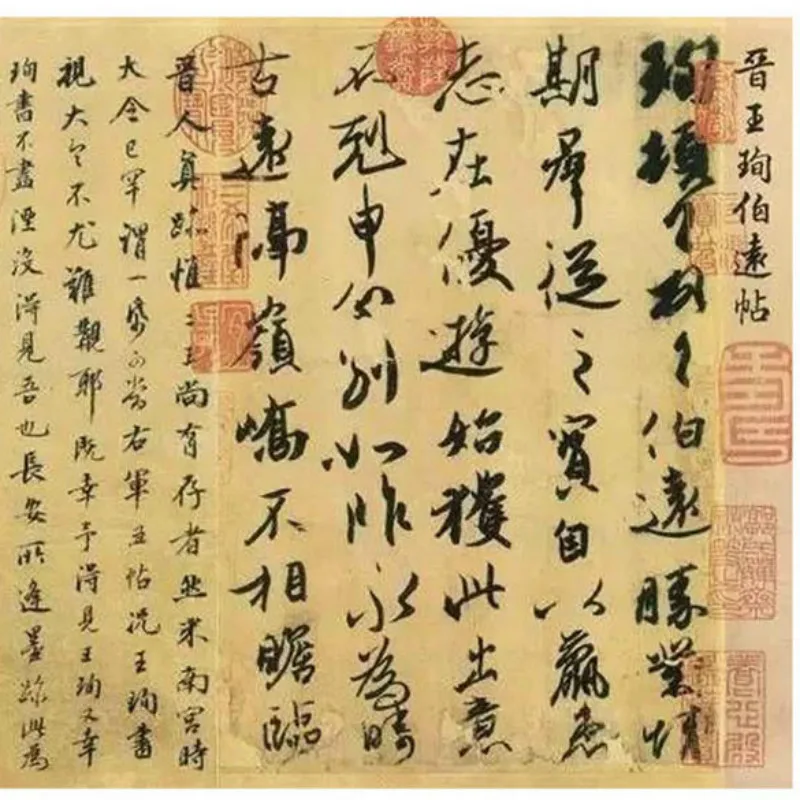 晉王珣伯遠帖
珣頓首頓首伯遠勝業情
期羣從之寶自以羸患
志在優遊始獲此出意
不剋申分別如昨永為疇
古遠隔嶺嶠不相瞻臨
晉人真跡惟二王尚有存者然米南宮時
大令已罕謂一帋可當右軍五帖況王珣書
視大令不尤難覯耶既幸予得見王珣又幸
珣書不盡湮沒得見吾也長安所逢墨跡此為